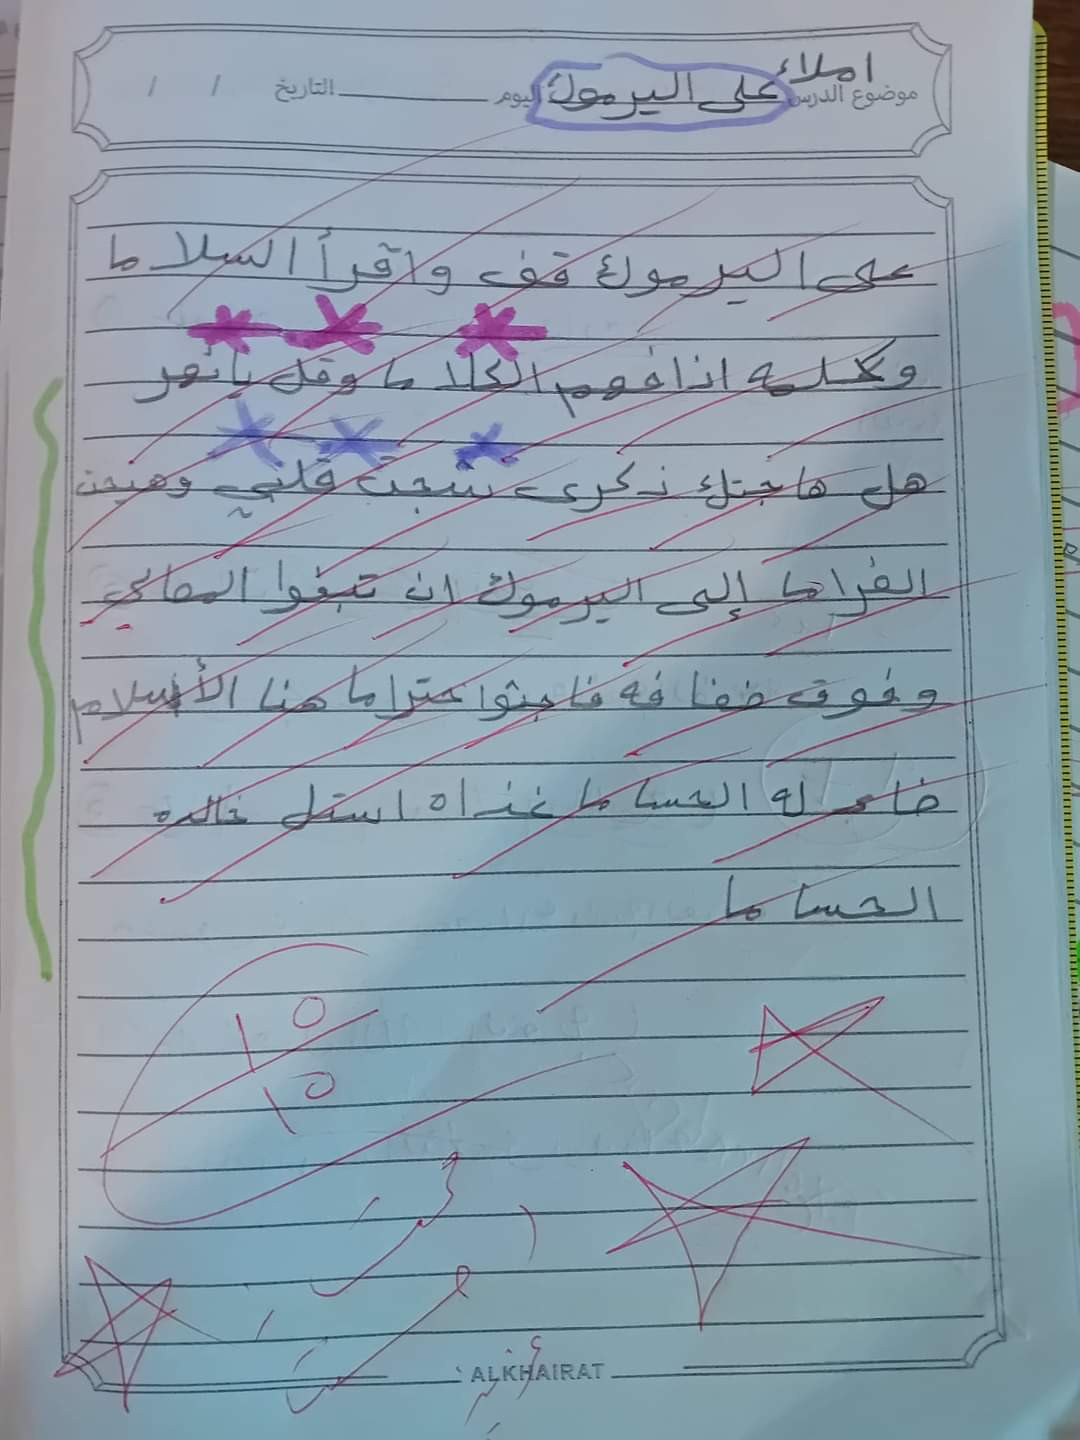 املاء
موضوع الدرس على اليرموك اليوم التاريخ / /
على اليرموك قف واقرأ السلاما
وكلمه اذا فهم الكلاما وقل يا نهر
هل هاجتك ذكرى شجت قلبي وهيجت
الغراما إلى اليرموك ان تبغوا المعالي
وفوق ضفا فه فاجثوا حتراما هنا الأسلام
ضا له الحسا ما غداه استل خالده
الحسا ما
١٠
١٠
ALKHAIRAT